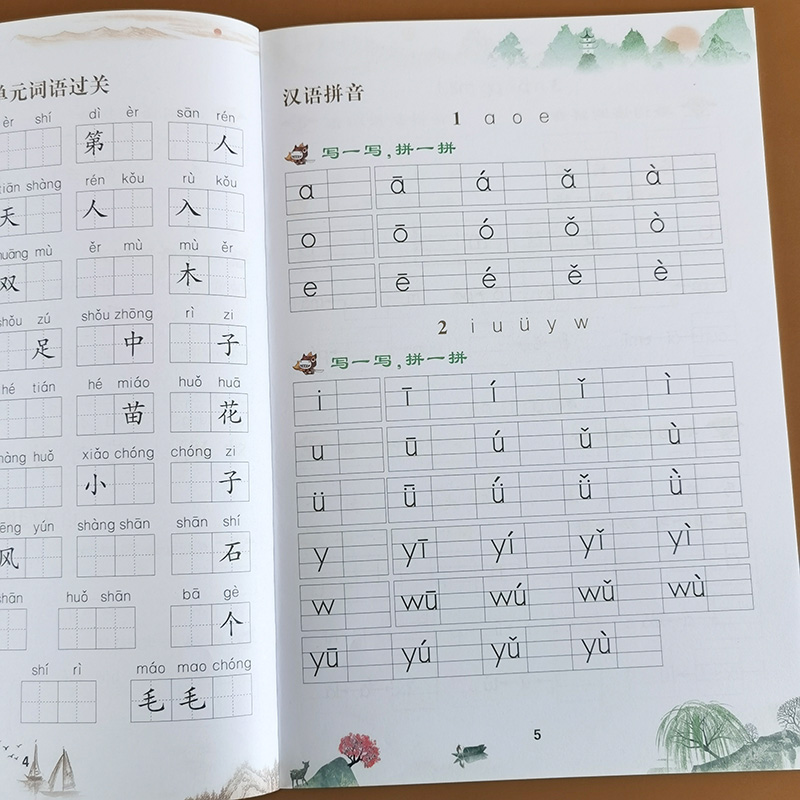 单元词语过关
èr shí dì èr sān rén
第 人
tiān shàng rén kǒu rù kǒu
天 人 入
shuāng mù ěr mù mù ěr
双 木
shǒu zú shǒu zhōng rì zi
足 中 子
hé tián hé miáo huǒ huā
苗 花
shàng huǒ xiǎo chóng chóng zi
小 子
fēng yún shàng shān shān shí
风 石
shān huǒ shān bā gè
个
shí rì máo mao chóng
毛 毛
4
汉语拼音
1 ɑ o e
写一写,拼一拼
ɑ ā á ǎ à
o ō ó ǒ ò
e ē é ě è
2 i u ü y w
写一写,拼一拼
i ī í ǐ ì
u ū ú ǔ ù
ü ǖ ǘ ǚ ǜ
y yī yí yǐ yì
w wū wú wǔ wù
yū yú yǔ yù
5